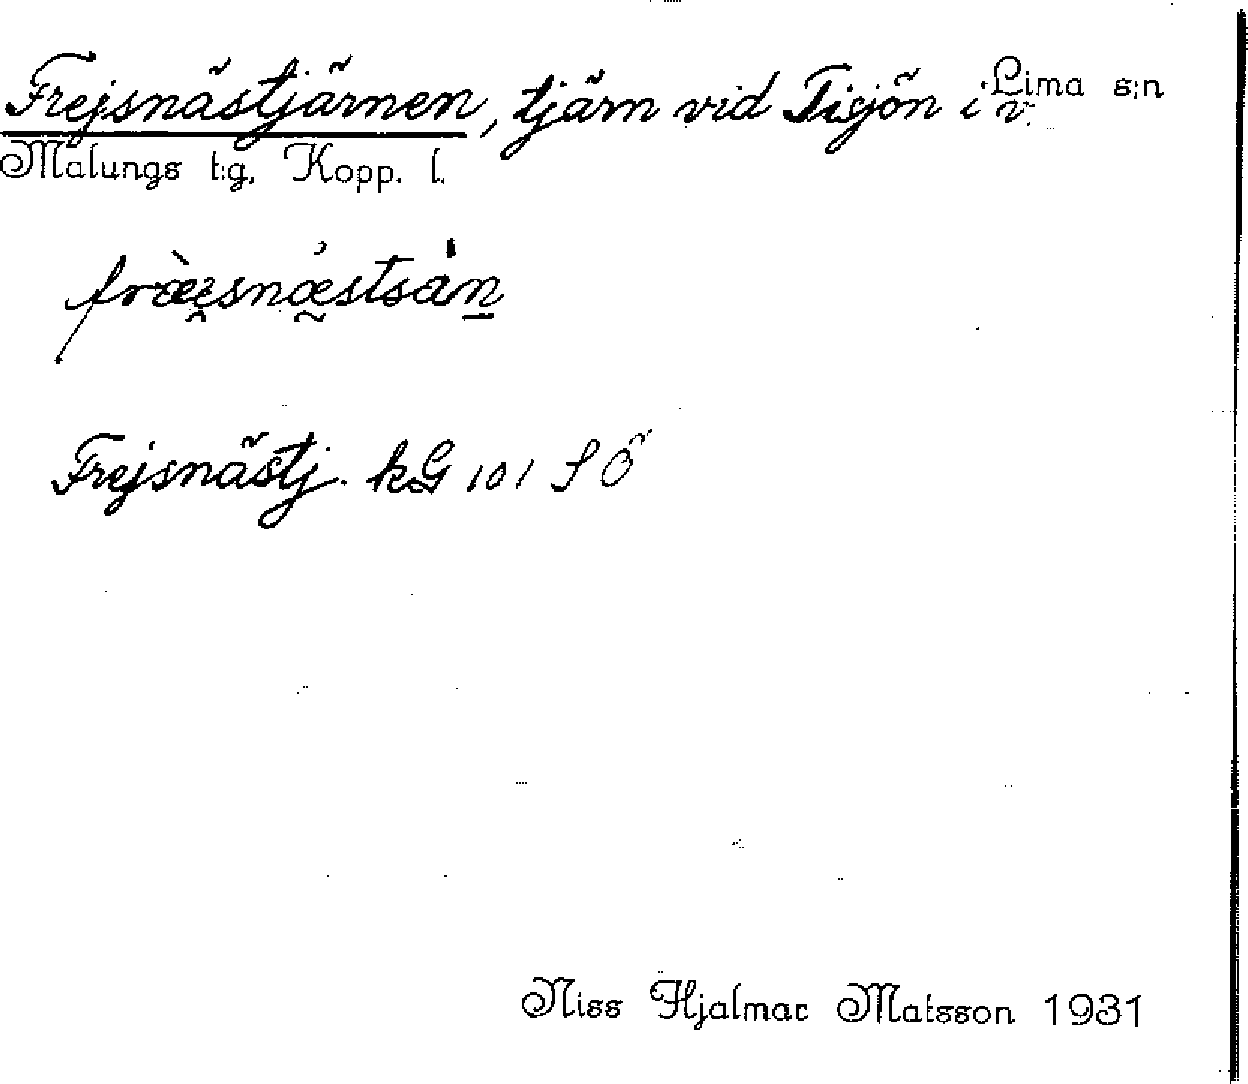 Frejsnästjärnen, tjärn vid Tisjön i v. Lima s:n
Malungs t:g, Kopp. l.
Frejsnästj. kG 101 SÖ
Niss Hjalmar Matsson 1931